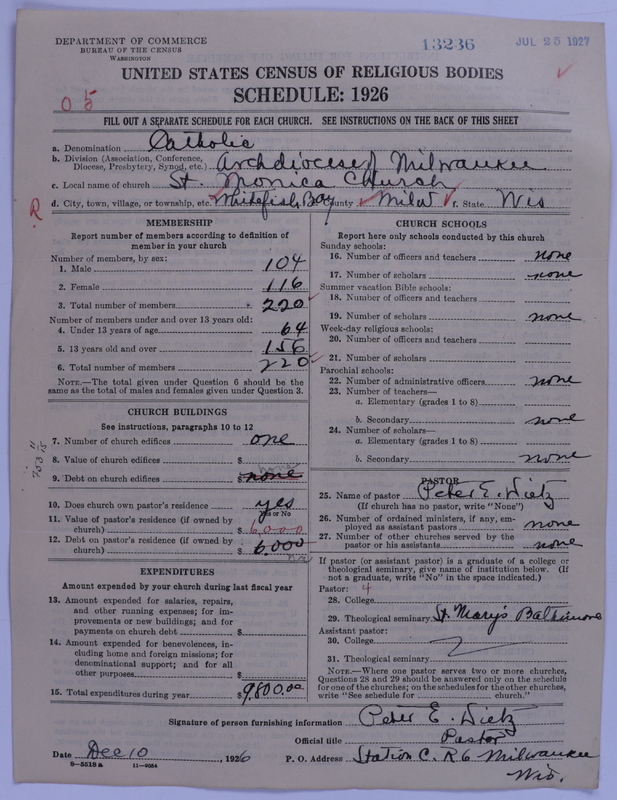 DEPARTMENT OF COMMERCE
BUREAU OF THE CENSUS
WASHINGTON
13236
JUL 25 1927
UNITED STATES CENSUS OF RELIGIOUS BODIES
SCHEDULE: 1926
FILL OUT A SEPARATE SCHEDULE FOR EACH CHURCH. SEE INSTRUCTIONS ON THE BACK OF THIS SHEET
a. Denomination Catholic
b. Division (Association, Conference, Diocese, Presbytery, Synod, etc.) Archdiocese of Milwaukee
c. Local name of church St. Monica Church
d. City, town, village, or township, etc. Whitefish Bay County Milw f. State Wis
R
MEMBERSHIP
Report number of members according to definition of
member in your church
Number of members, by sex:
1. Male 104
2. Female 116
3. Total number of members 220
Number of members under and over 13 years old:
4. Under 13 years of age 64
5. 13 years old and over 156
6. Total number of members 220
NOTE.—The total given under Question 6 should be
same as the total of males and females given under Question 3.
CHURCH BUILDINGS
See instructions, paragraphs 10 to 12
7. Number of church edifices one
8. Value of church edifices $
9. Debt on church edifices $ none
10. Does church own pastor's residence yes
Yes or No
11. Value of pastor's residence (if owned by
church) $ 6,000
12. Debt on pastor's residence (if owned by
church) $ 6,000
EXPENDITURES
Amount expended by your church during last fiscal year
13. Amount expended for salaries, repairs,
and other running expenses; for im-
provements or new buildings; and for
payments on church debt $
14. Amount expended for benevolences, in-
cluding home and foreign missions; for
denominational support; and for all
other purposes $
15. Total expenditures during year $ 9,800.00
CHURCH SCHOOLS
Report here only schools conducted by this church
Sunday schools:
16. Number of officers and teachers none
17. Number of scholars none
Summer vacation Bible schools:
18. Number of officers and teachers
19. Number of scholars none
Week-day religious schools:
20. Number of officers and teachers
21. Number of scholars
Parochial schools:
22. Number of administrative officers none
23. Number of teachers—
a. Elementary (grades 1 to 8)
b. Secondary none
24. Number of scholars—
a. Elementary (grades 1 to 8)
b. Secondary none
PASTOR
25. Name of pastor Peter E. Dietz
(If church has no pastor, write "None")
26. Number of ordained ministers, if any, em-
ployed as assistant pastors none
27. Number of other churches served by the
pastor or his assistants none
If pastor (or assistant pastor) is a graduate of a college or
theological seminary, give name of institution below. (If
not a graduate, write "No" in the space indicated.)
Pastor: 4
28. College
29. Theological seminary St. Mary's Baltimore
Assistant pastor:
30. College
31. Theological seminary
NOTE.—Where one pastor serves two or more churches,
Questions 28 and 29 should be answered only on the schedule
for one of the churches; on the schedules for the other churches,
write "See schedule for church."
Signature of person furnishing information Peter E. Dietz
Official title Pastor
Date Dec 10, 1926 P. O. Address Station C. R 6 Milwaukee
Wis.
8-5518 a 11-9054